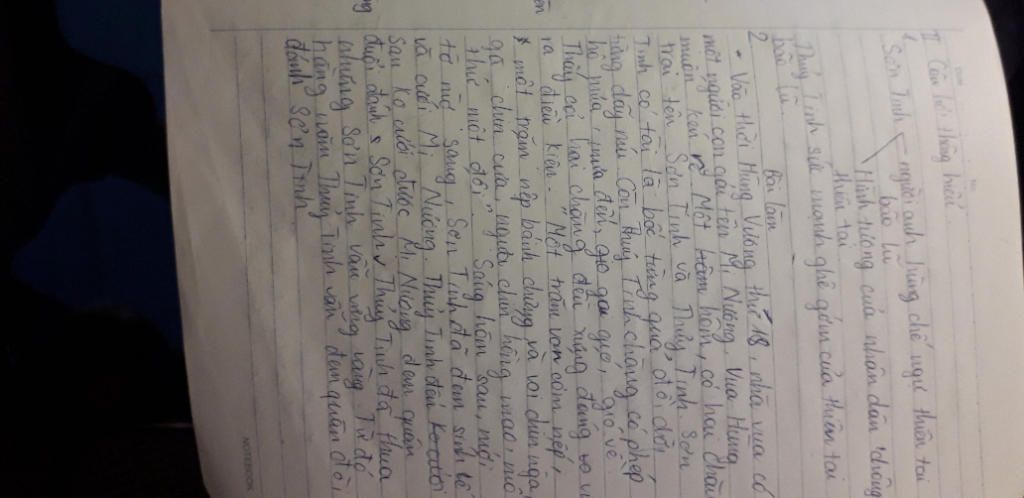 II Câu hỏi thông hiểu
1
Sơn Tinh người anh hùng chế ngự thiên tai
bão lũ
Hình tượng của nhân dân chống
thiên tai
Thủy Tinh sức mạnh ghê gớm của thiên tai
bão lũ.
Bài làm
2
• Vào thời Hùng Vương thứ 18, nhà vua có
một người con gái tên Mị Nương. Vua Hùng
muốn kén rể. Một hôm, có hai chàng
trai tên Sơn Tinh và Thủy Tinh. Sơn
Tinh có tài là bốc từng quả đồi dời
từng dãy núi. Còn Thủy Tinh chàng có phép
hô mưa, mưa đến, gọi gió, gió về.
Thấy cả hai chàng đều xứng đáng vua
ra điều kiện. Một trăm ván cơm nếp,
* một trăm nệp bánh chưng và voi chín ngà,
gà chín cựa, ngựa chín hồng mao, mỗi
thứ một đôi. Sáng hôm sau, mới
tờ mờ sáng, Sơn Tinh đã đem sính lễ
và cưới Mị Nương. Thủy Tinh đến
sau ko cưới được Mị Nương, đem quân
đuổi đánh Sơn Tinh. Thủy Tinh đã thua
nhưng Sơn Tinh vẫn vững vàng. Từ đó
hằng năm Thủy Tinh vẫn đem quân đội
đánh Sơn Tinh
NOTEBOOK